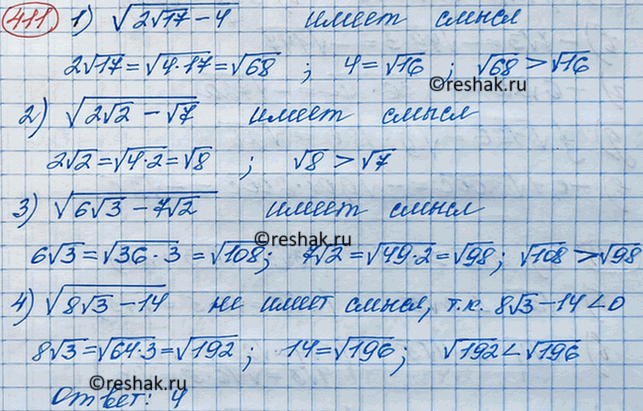 411. 1) √(2√17 - 4) имеет смысл
2√17 = √(4·17) = √68 ; 4 = √16 ; √68 > √16
©reshak.ru
2) √(2√2 - √7) имеет смысл
2√2 = √(4·2) = √8 ; √8 > √7
3) √(6√3 - 7√2) имеет смысл
©reshak.ru
6√3 = √(36·3) = √108; 7√2 = √(49·2) = √98; √108 > √98
4) √(8√3 - 14) не имеет смысл, т.к. 8√3 - 14 < 0
8√3 = √(64·3) = √192 ; 14 = √196 ; √192 < √196
©reshak.ru
Ответ: 4